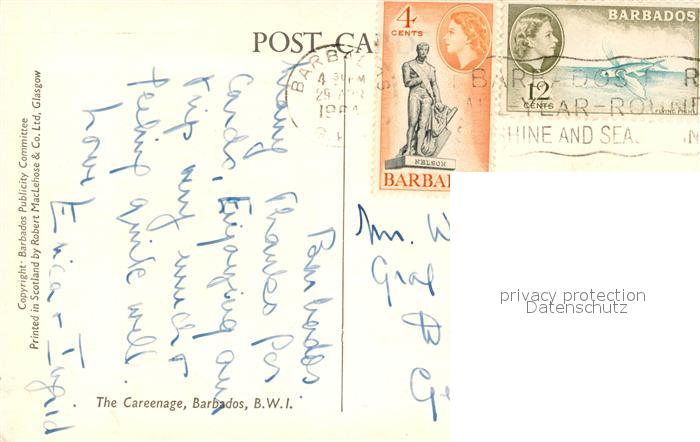 POST CA
Copyright: Barbados Publicity Committee
Printed in Scotland by Robert MacLehose & Co. Ltd, Glasgow
Barbados.
Many thanks for
cards, Enjoying our
trip very much &
feeling quite well.
Love
Erica & Ingrid
The Careenage, Barbados, B.W.I.
4
CENTS
NELSON
BARBA
BARBADOS
12
CENTS
FLYING FISH
BARBA
29 APR
BARBADOS
YEAR-ROUN
HINE AND SEA
Mr. W
Graf
privacy protection
Datenschutz